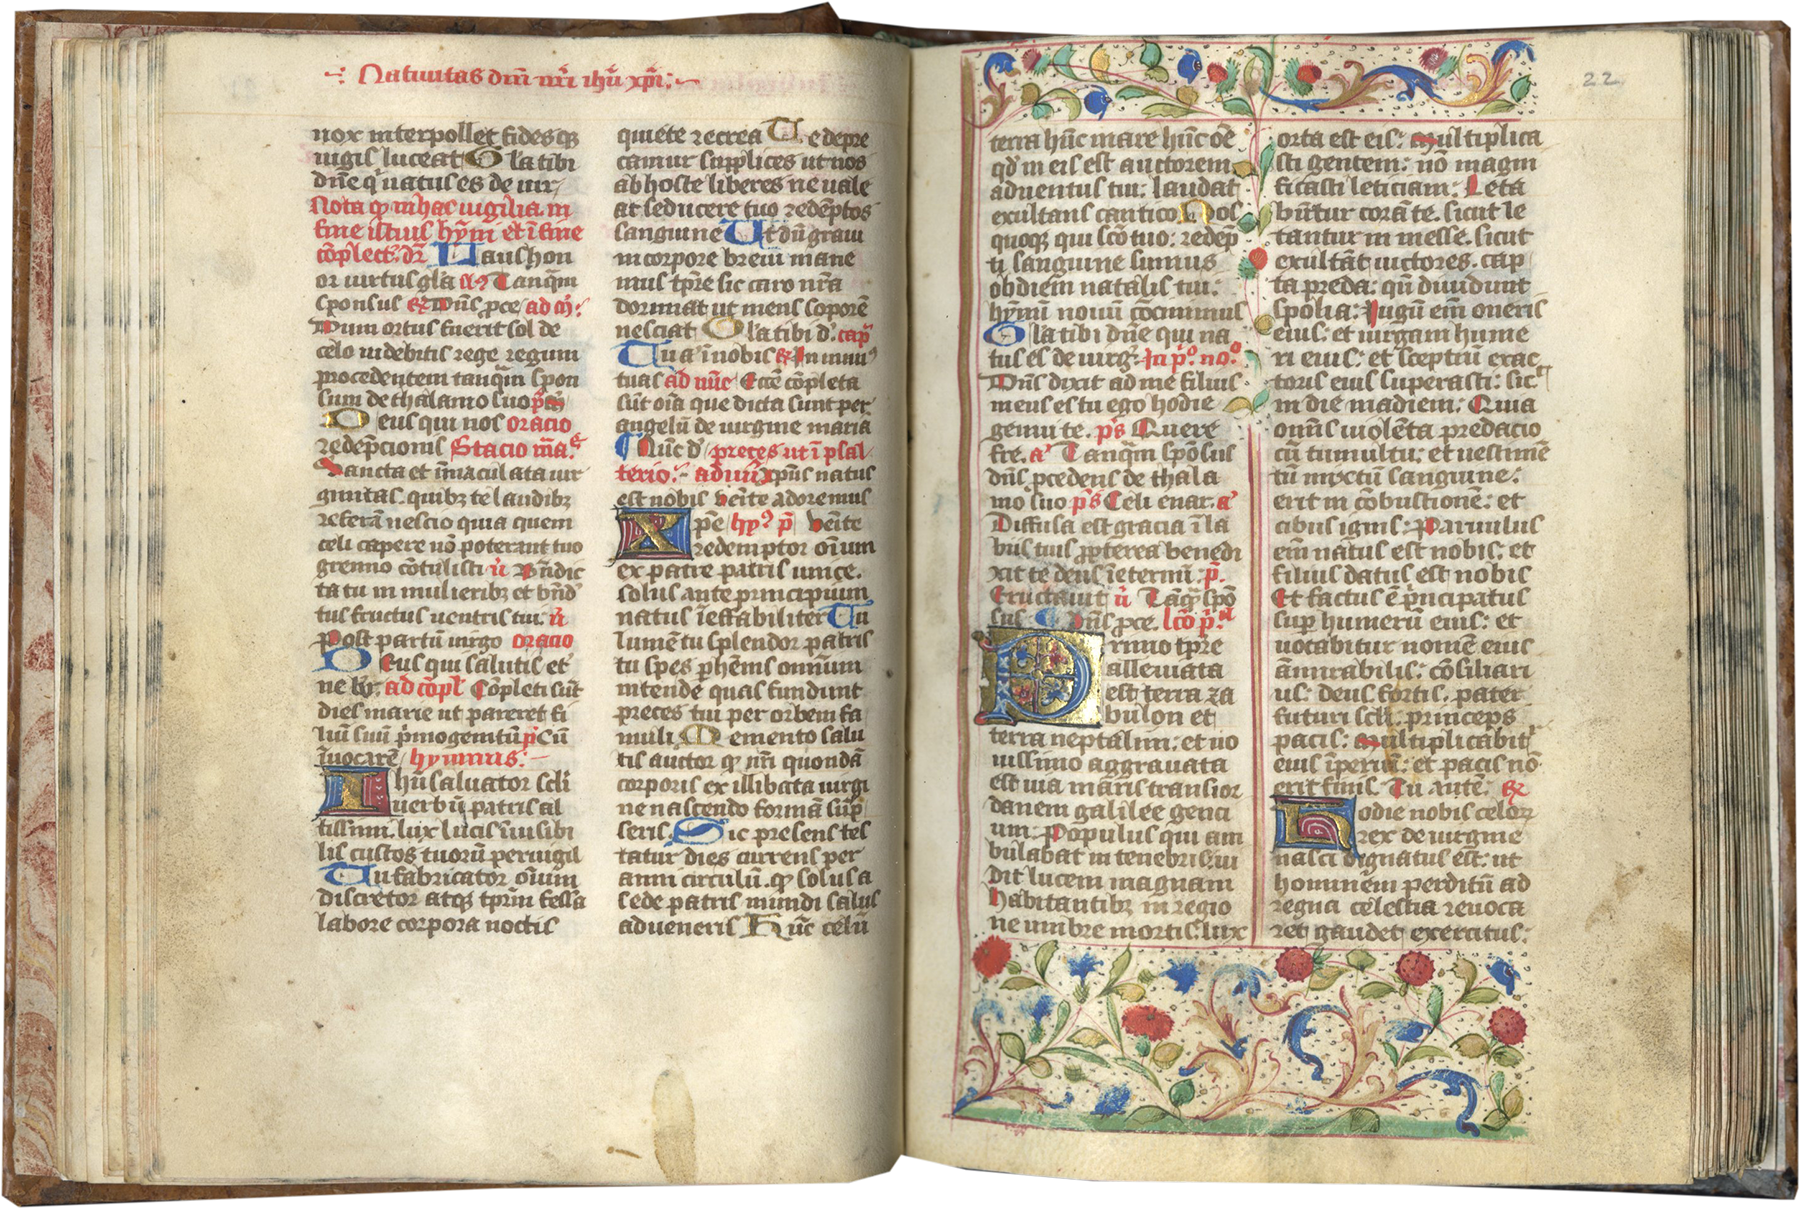 Natiuitas dm̄ nr̄i ihū xp̄i
nox interpollet fidesqꝫ
iugis luceat Gla tibi
dn̄e q natus es de uir
Nota qp in hac uigilia in
fine istius hym̄ et ī fine
cōplect. dr̄ Laus hon
or uirtus gła a Tanqm̄
sponsus Dn̄s pce ad m̄
Dum ortus fuerit sol de
celo uidebitis rege regum
procedentem tanqm̄ spon
sum de thalamo suo
Deus qui nos oracio
redēpcionis Stacio
Sancta et ī̄maculata uir
ginitas. quibꝫ te laudibꝫ
referā nescio quia quem
celi capere nō poterant tuo
gremio cōtulisti Bn̄dic
ta tu in mulieribꝫ et bn̄d
tus fructus uentris tui.
Post partū uirgo oracio
Deus qui salutis et
ne ad cōpł Cōpleti sūt
dies marie ut pareret fi
liū suū pmogenitū Cū
īuocarē hymnus.
Ihū saluator scli
uerbū patris al
tissimi. lux lucis īuisibi
lis custos tuorū peruigil
Tu fabricator oīum
discretor atqꝫ tpm̄ fessa
labore corpora noctis
quiete recrea Te depre
camur supplices ut nos
ab hoste liberes ne uale
at seducere tuo redēptos
sanguine Ut dū graui
in corpore breui mane
mus tpre sic caro nr̄a
dormiat ut mens soporē
nesciat Gla tibi d. cap
Tu a ī nobis In inniū
tuas ad nūc Ecce cōpleta
sūt oīa que dicta sunt per
angelū de uirgine maria
Nūc d preces ut ī psal
terio. ad xpūs natus
est nobis uenite adoremus
Xpe hy uenite
redemptor oīum
ex patre patris unice.
solus ante principium
natus īeffabiliter Tu
lumē tu splendor patris
tu spes phēnis omnium
intende quas fundunt
preces tui per orbem fa
muli Memento salu
tis auctor qp nr̄i quondā
corporis ex illibata uirgi
ne nascendo formā sūp
seris. Sic presens tes
tatur dies currens per
anni circulū. qp solus a
sede patris mundi salus
adueneris Hūc celū
22
terra hūc mare hūc oē
qd in eis est auctorem
aduentus tui: laudat
exultans cantico Nos
quoqꝫ qui scō tuo: redēp
ti sanguine sumus
ob diem natalis tui:
hymū nouū cōcinimus
Gla tibi dn̄e qui na
tus es de uirg. In p. no.
Dn̄s dixit ad me filius
meus es tu ego hodie
genui te. ps Quere
fre. a Tanqm̄ sponsus
dn̄s pcedens de thala
mo suo ps Celi enar. a
Diffusa est gracia ī la
biis tuis ppterea benedi
xit te deus ī eternū. p.
Eructauit Tāqꝫ spō
sus. Dn̄s pce. lcō p.
Primo tpre
alleuiata
est terra za
bulon et
terra neptalim: et no
uissimo aggrauata
est uia maris transior
danem galilee genci
um. Populus qui am
bulabat in tenebris: ui
dit lucem magnam
habitantibꝫ in regio
ne umbre mortis: lux
orta est eis: multiplica
sti gentem: nō magni
ficasti leticiam: Leta
būtur corā te. sicut le
tantur in messe. sicut
exultāt uictores. cap
ta preda: qn̄ diuidunt
spolia: Iugū em̄ oneris
eius: et uirgam hume
ri eius: et sceptrū exac
toris eius superasti: sic.
in die madiem: Quia
omīs uiolēta predacio
cū tumultu: et uestimē
tū mixtū sanguine:
erit in cōbustionē: et
cibus ignis: Paruulus
em̄ natus est nobis: et
filius datus est nobis
Et factus ē p̄ncipatus
sup humerū eius: et
uocabitur nomē eius
ām̄irabilis: cōsiliari
us: deus fortis. pater
futuri scli: princeps
pacis: multiplicabit
eius īperiū: et pacis nō
erit finis. Tu autē.
Hodie nobis celor
rex de uirgine
nasci dignatus est: ut
hominēm perditū ad
regna celestia reuoca
ret gaudet exercitus: